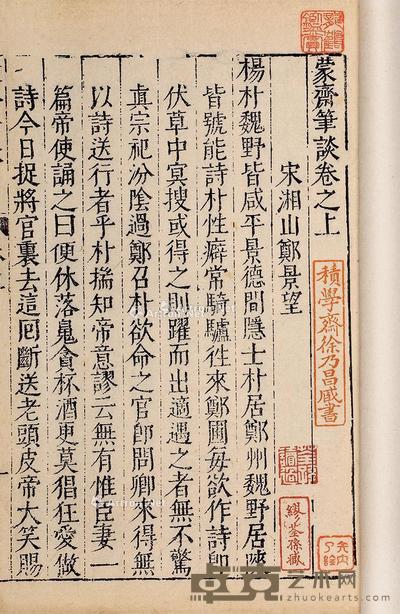 蒙齋筆談卷之上
宋湘山鄭景望
楊朴魏野皆咸平景德間隱士朴居鄭州魏野居陝
皆號能詩朴性癖常騎驢徃來鄭圃每欲作詩即
伏草中冥搜或得之則躍而出適遇之者無不驚
真宗祀汾陰過鄭召朴欲命之官即問卿來得無
以詩送行者乎朴揣知帝意謬云無有惟臣妻一
篇帝使誦之曰更休落䰟貪杯酒更莫猖狂愛做
詩今日捉將官裏去這囘斷送老頭皮帝大笑賜
積學齋徐乃昌臧書
繆荃孫臧
卓克艺术网
www.zhuokearts.com